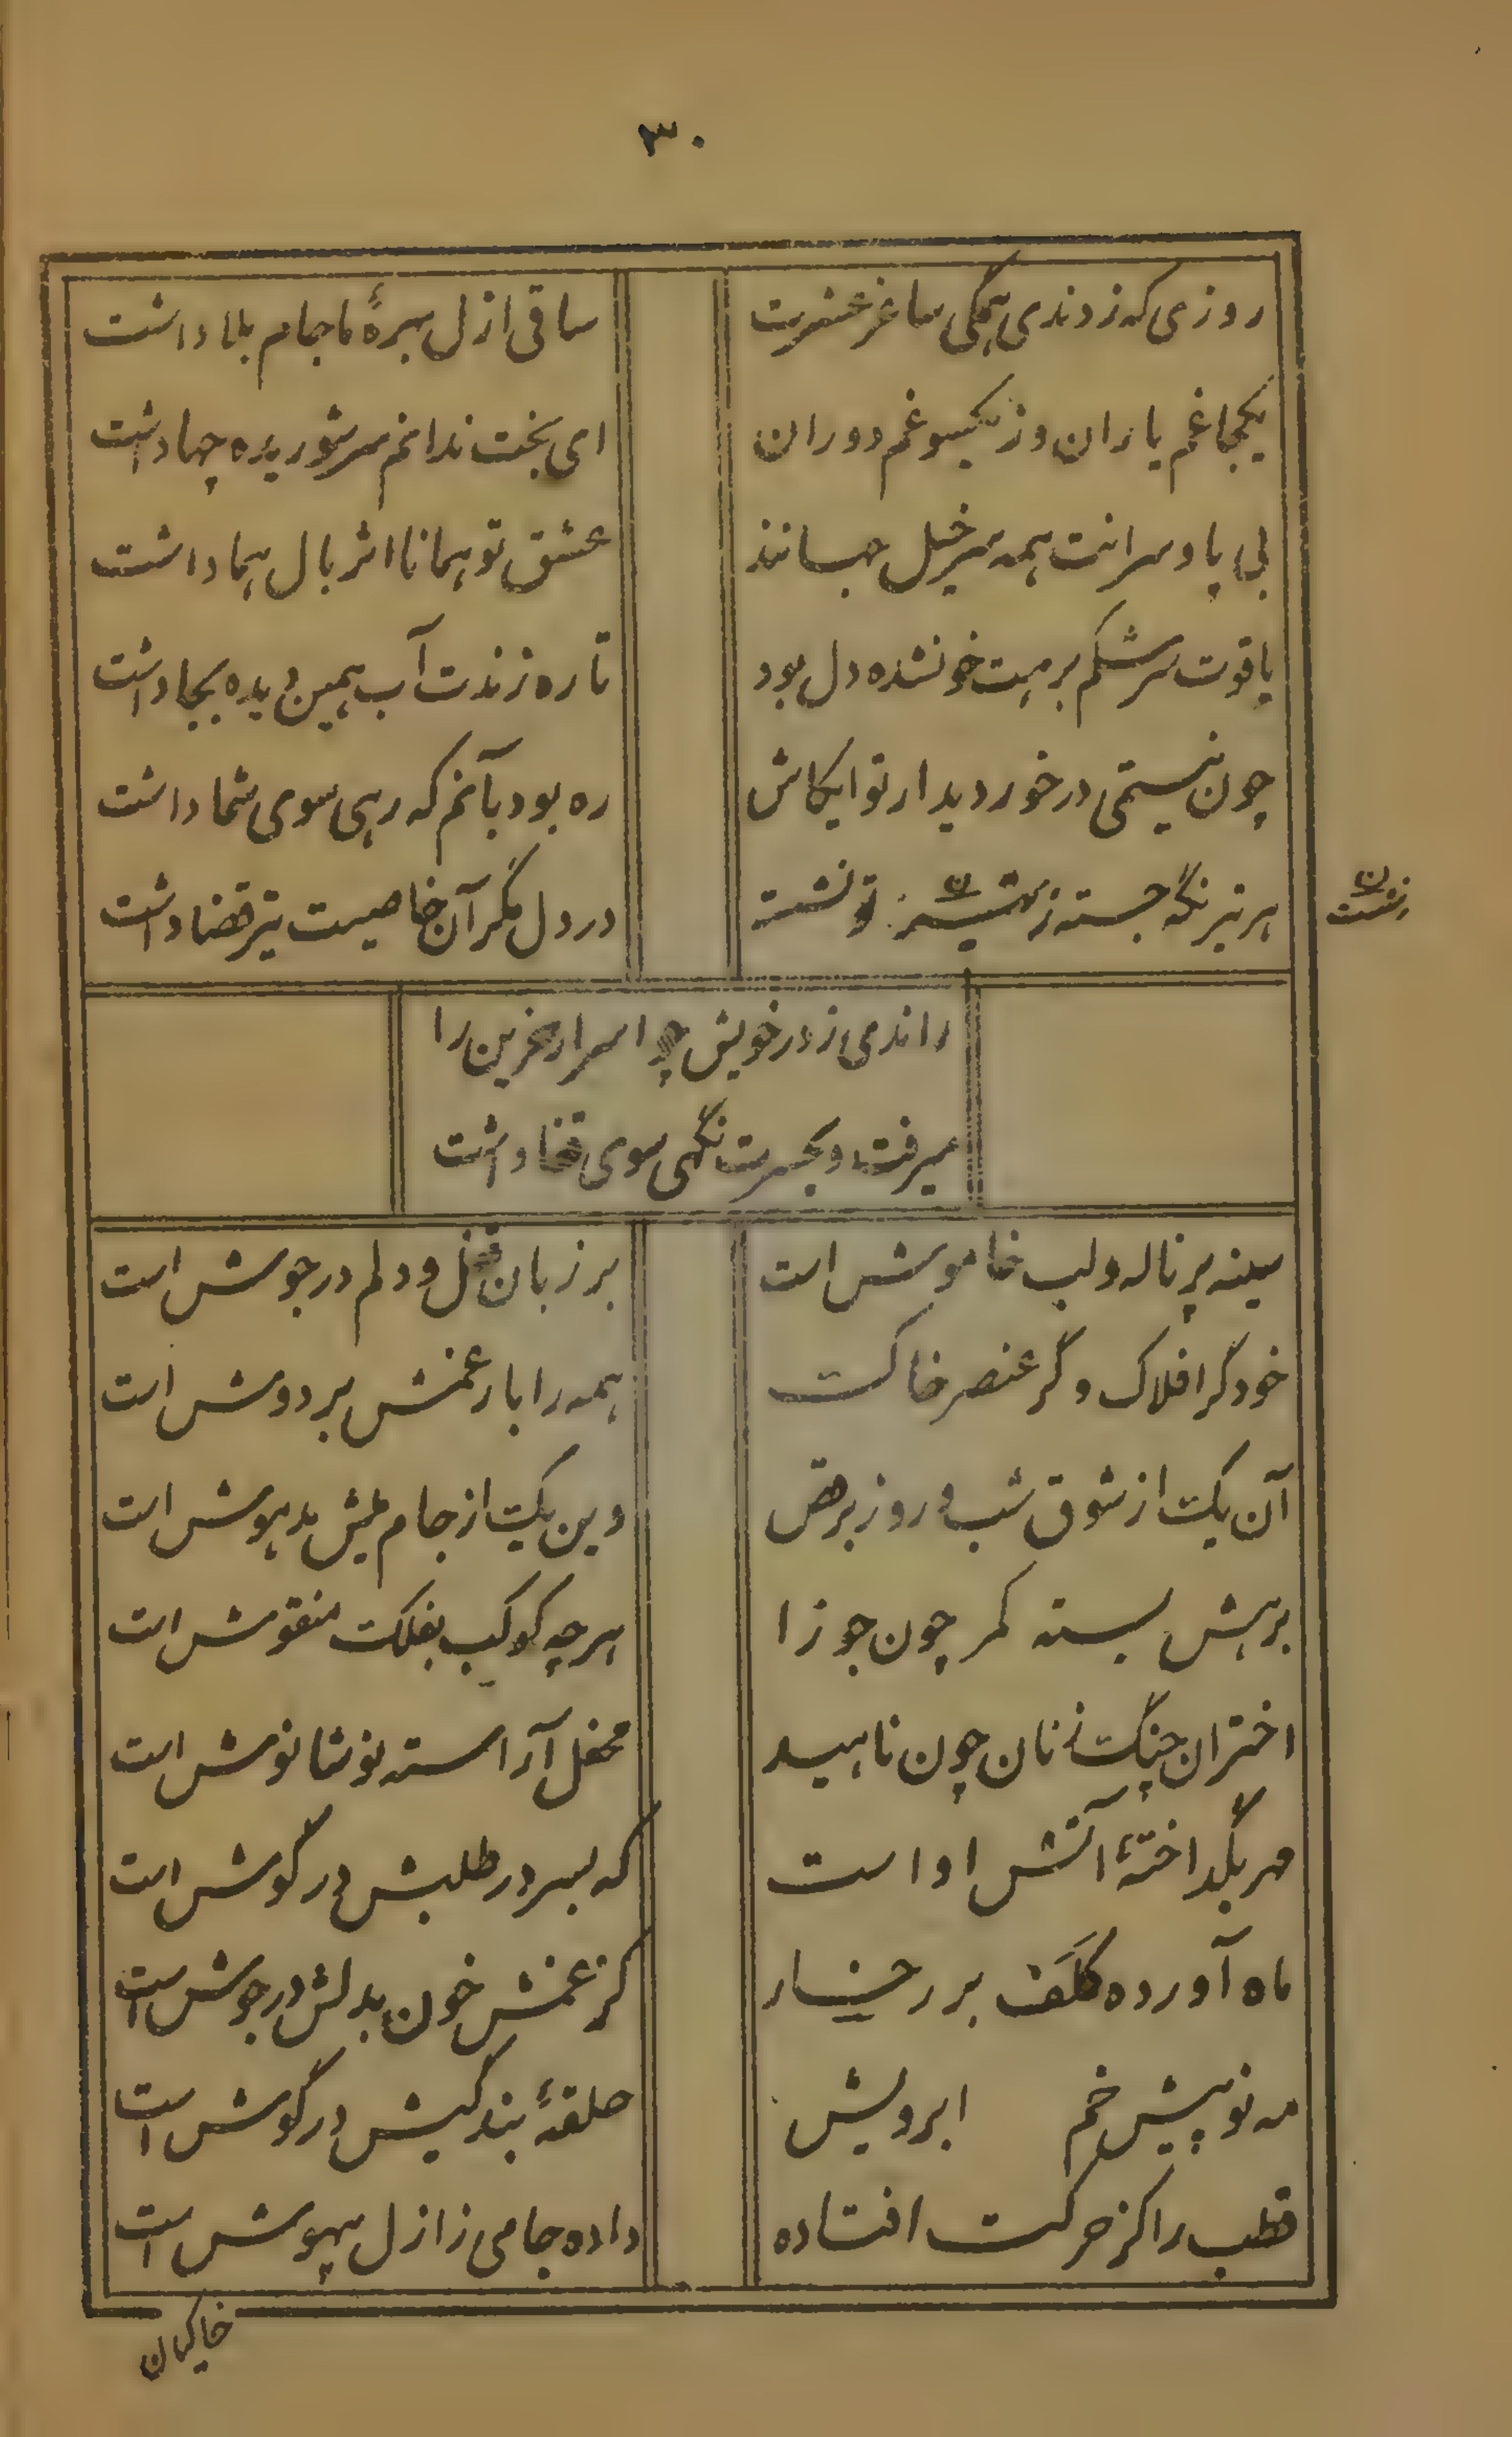 ۳۰
روزی که زدندی همگی ساغر عشرت ساقی ازل بهرهٔ ما جام بلا داشت
یکجا غم یاران و ز یکسو غم دوران ای بخت ندانم سر شوریده چها داشت
بی پا و سرانت همه سرخیل جهانند عشق تو همانا اثر بال هما داشت
یاقوت سرشکم برهت خونشده دل بود تا ره زندت آب همین دیده بجا داشت
چون نیستمی درخور دیدار تو ایکاش ره بود بآنم که رهی سوی شما داشت
هر تیر نگه جسته ز تو نشسته در دل مگر آن خاصیت تیر قضا داشت
ن زشست
راندمی ز در خویش چو اسرار حزین را
میرفت و بحسرت نگهی سوی قفا داشت
سینه پر ناله و لب خاموش است بر زبان قفل و دلم در جوش است
خود گر افلاک و گر عنصر خاکست همه را بار غمش بر دوش است
آن یکت از شوق شب و روز برقص وین یکیت از جام میش مدهوش است
برهش بسته کمر چون جوزا هرچه کوکب بفلکت منقوش است
اختران چنگ زنان چون ناهید محفل آراسته نوشانوش است
مهر بگداختهٔ آتش او است که بسر در طلبش در گوش است
ماه آورده کَلَف بر رخسار کز غمش خون بدلش در جوش است
مه نو پیش خم ابرویش حلقهٔ بندگیش در گوش است
قطب را کز حرکت افتاده داده جامی ز ازل بیهوش است
خاکیان